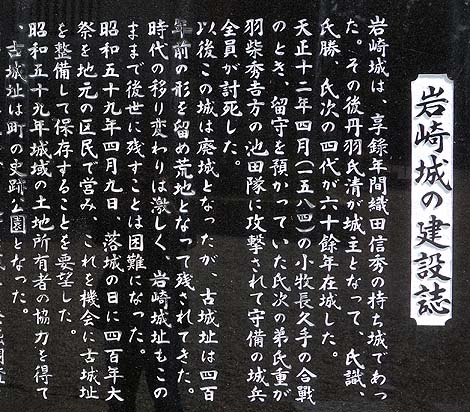 岩崎城の建設誌
岩崎城は、享録年間織田信秀の持ち城であっ
た。その後丹羽氏清が城主となって、氏識、
氏勝、氏次の四代が六十餘年在城した。
天正十二年四月(一五八四)の小牧長久手の合戦
のとき、留守を預かっていた氏次の弟氏重が
羽柴秀吉方の池田隊に攻撃されて守備の城兵
全員が討死した。
以後この城は廃城となったが、古城址は四百
年前の形を留め荒地となって残されてきた。
時代の移り変わりは激しく、岩崎城址もこの
ままで後世に残すことは困難になった。
昭和五十九年四月九日、落城の日に四百年大
祭を地元の区民で営み、これを機会に古城址
を整備して保存することを要望した。
昭和五十九年城域の土地所有者の協力を得て
、古城址は町の史跡公園となった。